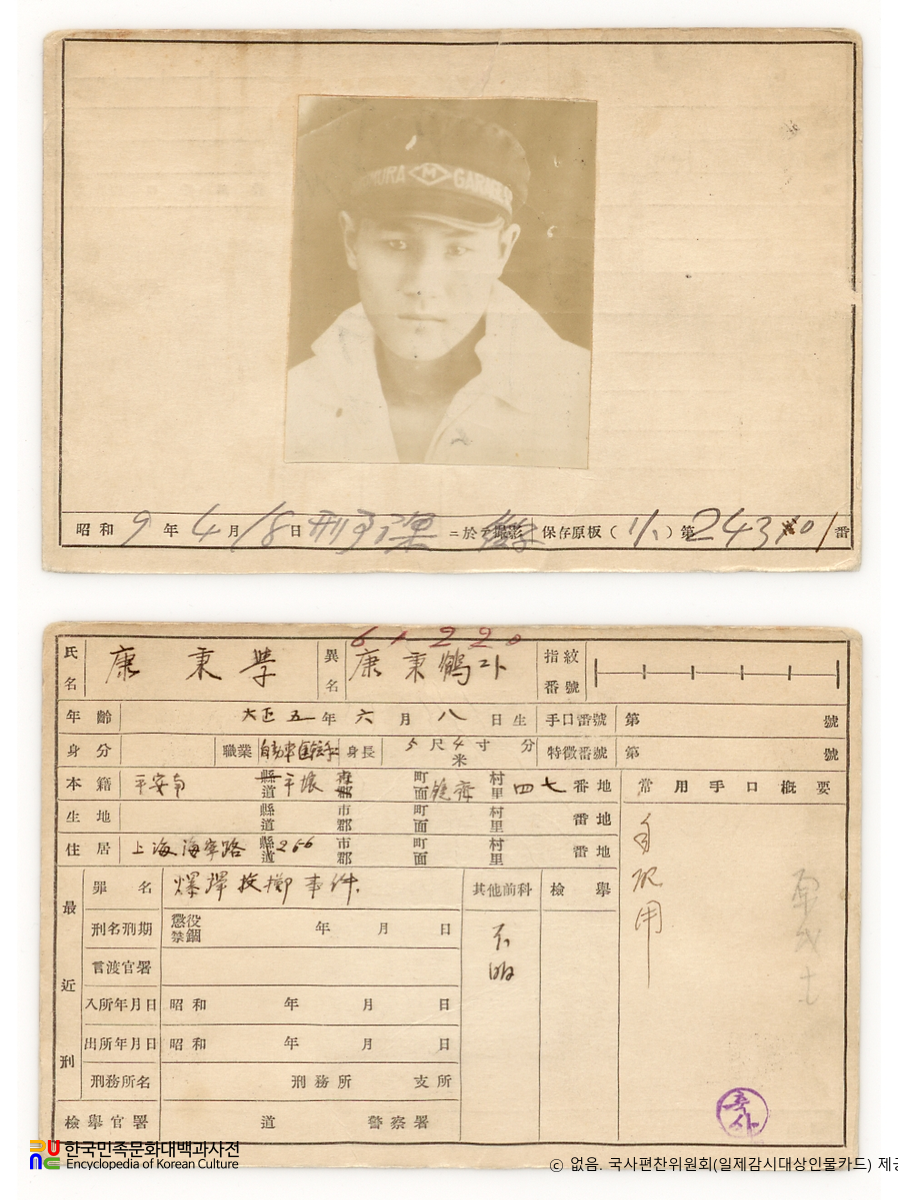 MURA M GARAGE
昭和9年4月18日刑事課ニ於テ撮影 保存原板(1/1)第243 01番
61220
氏名 康秉學 異名 康秉鶴 指紋番號
年齡 大正五年六月八日生 手口番號 第 號
身分 職業 自動車 身長 5尺4寸 分 米 特徵番號 第 號
本籍 平安南 縣道 平壤 市郡 町面 鏡齊 村里 四七番地 常用手口概要
生地 縣道 市郡 町面 村里 番地
住居 上海海寧路 縣道 266 市郡 町面 村里 番地
自
用
最近刑
罪名 爆彈投擲事件. 其他前科 檢擧
刑名刑期 懲役 禁錮 年 月 日
不明
言渡官署
入所年月日 昭和 年 月 日
出所年月日 昭和 年 月 日
刑務所名 刑務所 支所
檢擧官署 道 警察署
복사
한국민족문화대백과사전
Encyclopedia of Korean Culture
© 없음. 국사편찬위원회(일제감시대상인물카드) 제공